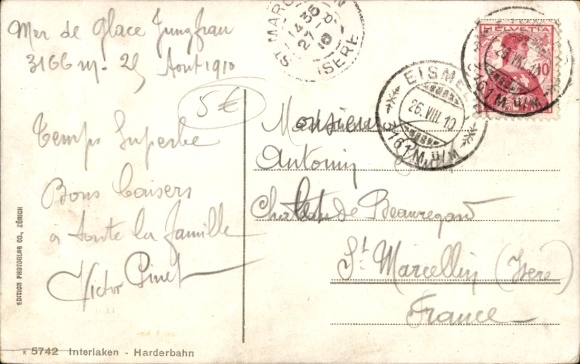 Mer de Glace Jungfrau
3166 m - 25 Aout 1910
5€
Temps Superbe
Bons baisers
à toute la famille
Victor Pinet
ST MARCELLIN
ISERE
HELVETIA
10
EISMEER
26.VIII.10
3161 M.ü/M
Monsieur
Antonin
Chateau de Beauregard
St Marcellin (Isère)
France
EDITION PHOTOGLOB CO., ZÜRICH
5742 Interlaken - Harderbahn